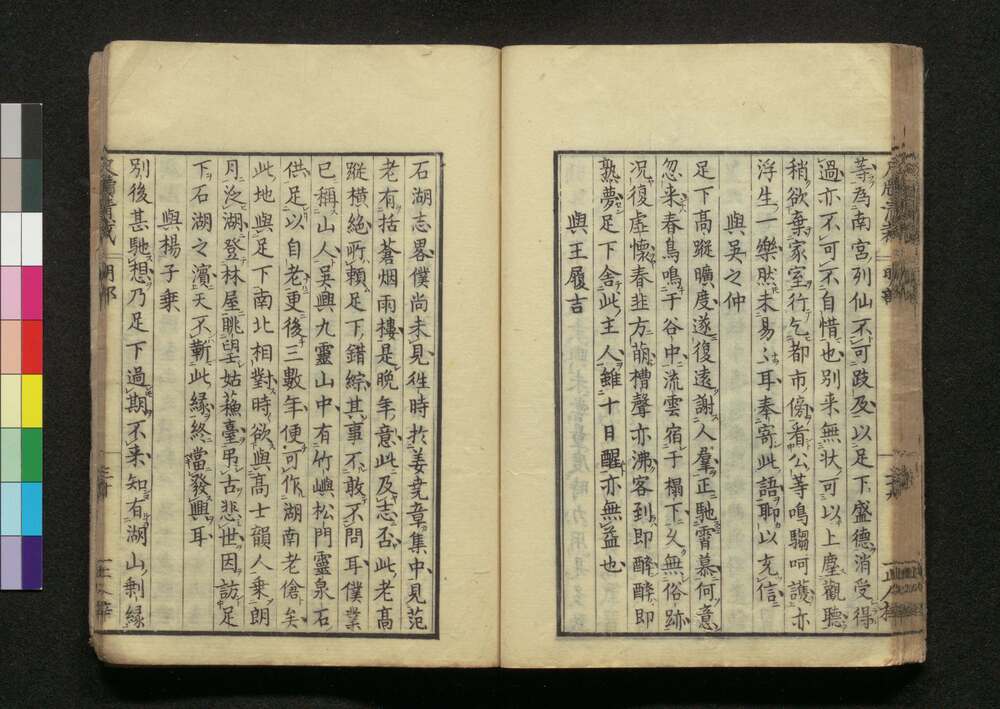 等為南宮列仙不可跂及以足下盛德消受得
過亦不可不自惜也別来無状可以上塵觀聽
稍欲棄家室行乞都市傍看公等鳴騶呵護亦
浮生一樂然未易〻耳奉寄此語聊以充信
與吳之仲
足下高蹤曠度遂復遠謝人羣正馳霄慕何意
忽来春鳥鳴于谷中流雲宿于榻下久無俗跡
况復虚懐春韭方萠槽聲亦沸客到即醉醉即
熟夢足下舍此主人雖十日醒亦無益也
與王履吉
石湖志畧僕尚未見徃時扵姜尭章集中見范
老有括蒼烟雨樓是晩年意此及志否此老高
蹤横絶所頼足下錯綜其事不敢不問耳僕業
已稱山人吳興九靈山中有竹嶼松門靈泉石
供足以自老更後三數年便可作湖南老傖矣
此地與足下南北相對時欲與高士韻人乗朗
月泛湖登林屋眺望姑蘓臺弔古悲世因訪足
下石湖之濵天不蘄此緣終當發興耳
與楊子乗
別後甚馳想乃足下過期不来知有湖山剰緣